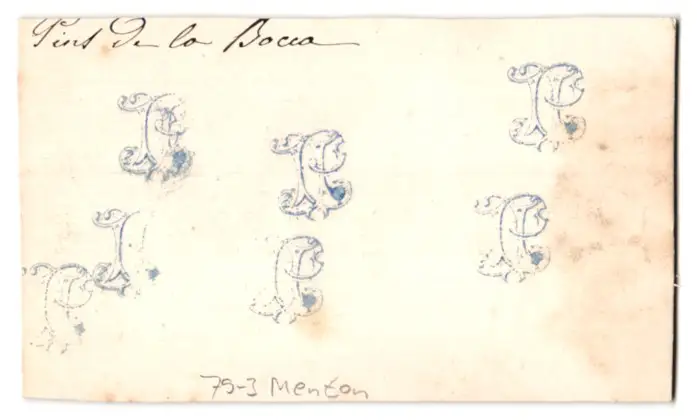 Pins de la Bocca
79-3 Menton